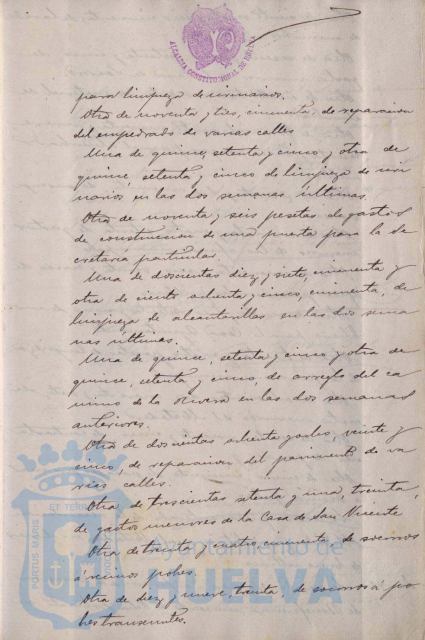 ALCALDIA CONSTITUCIONAL DE HUELVA
para limpieza de urinarios.
Otra de noventa y tres, cincuenta, de reparacion
del empedrado de varias calles
Una de quince, setenta y cinco y otra de
quince, setenta y cinco de limpieza de uri
narios en las dos semanas últimas.
Otra de noventa y seis pesetas de gastos
de construccion de una puerta para la Se
cretaria particular.
Una de doscientas diez y siete, cincuenta y
otra de ciento ochenta y cinco, cincuenta, de
limpieza de alcantarillas en las dos sema
nas últimas.
Una de quince, setenta y cinco y otra de
quince, setenta y cinco, de arreglo del ca
mino de la olivera en las dos semanas
anteriores.
Otra de doscientas ochenta y ocho, veinte y
cinco, de reparacion del pavimento de va
rias calles.
Otra de trescientas setenta y una, treinta,
de gastos menores de la Casa de San Vicente
Otra de treinta y cuatro, cincuenta de socorros
á vecinos pobres
Otra de diez y nueve, treinta de socorros á po
bres transeuntes.
PORTUS MARIS ET TERRAE
Ayuntamiento de
HUELVA